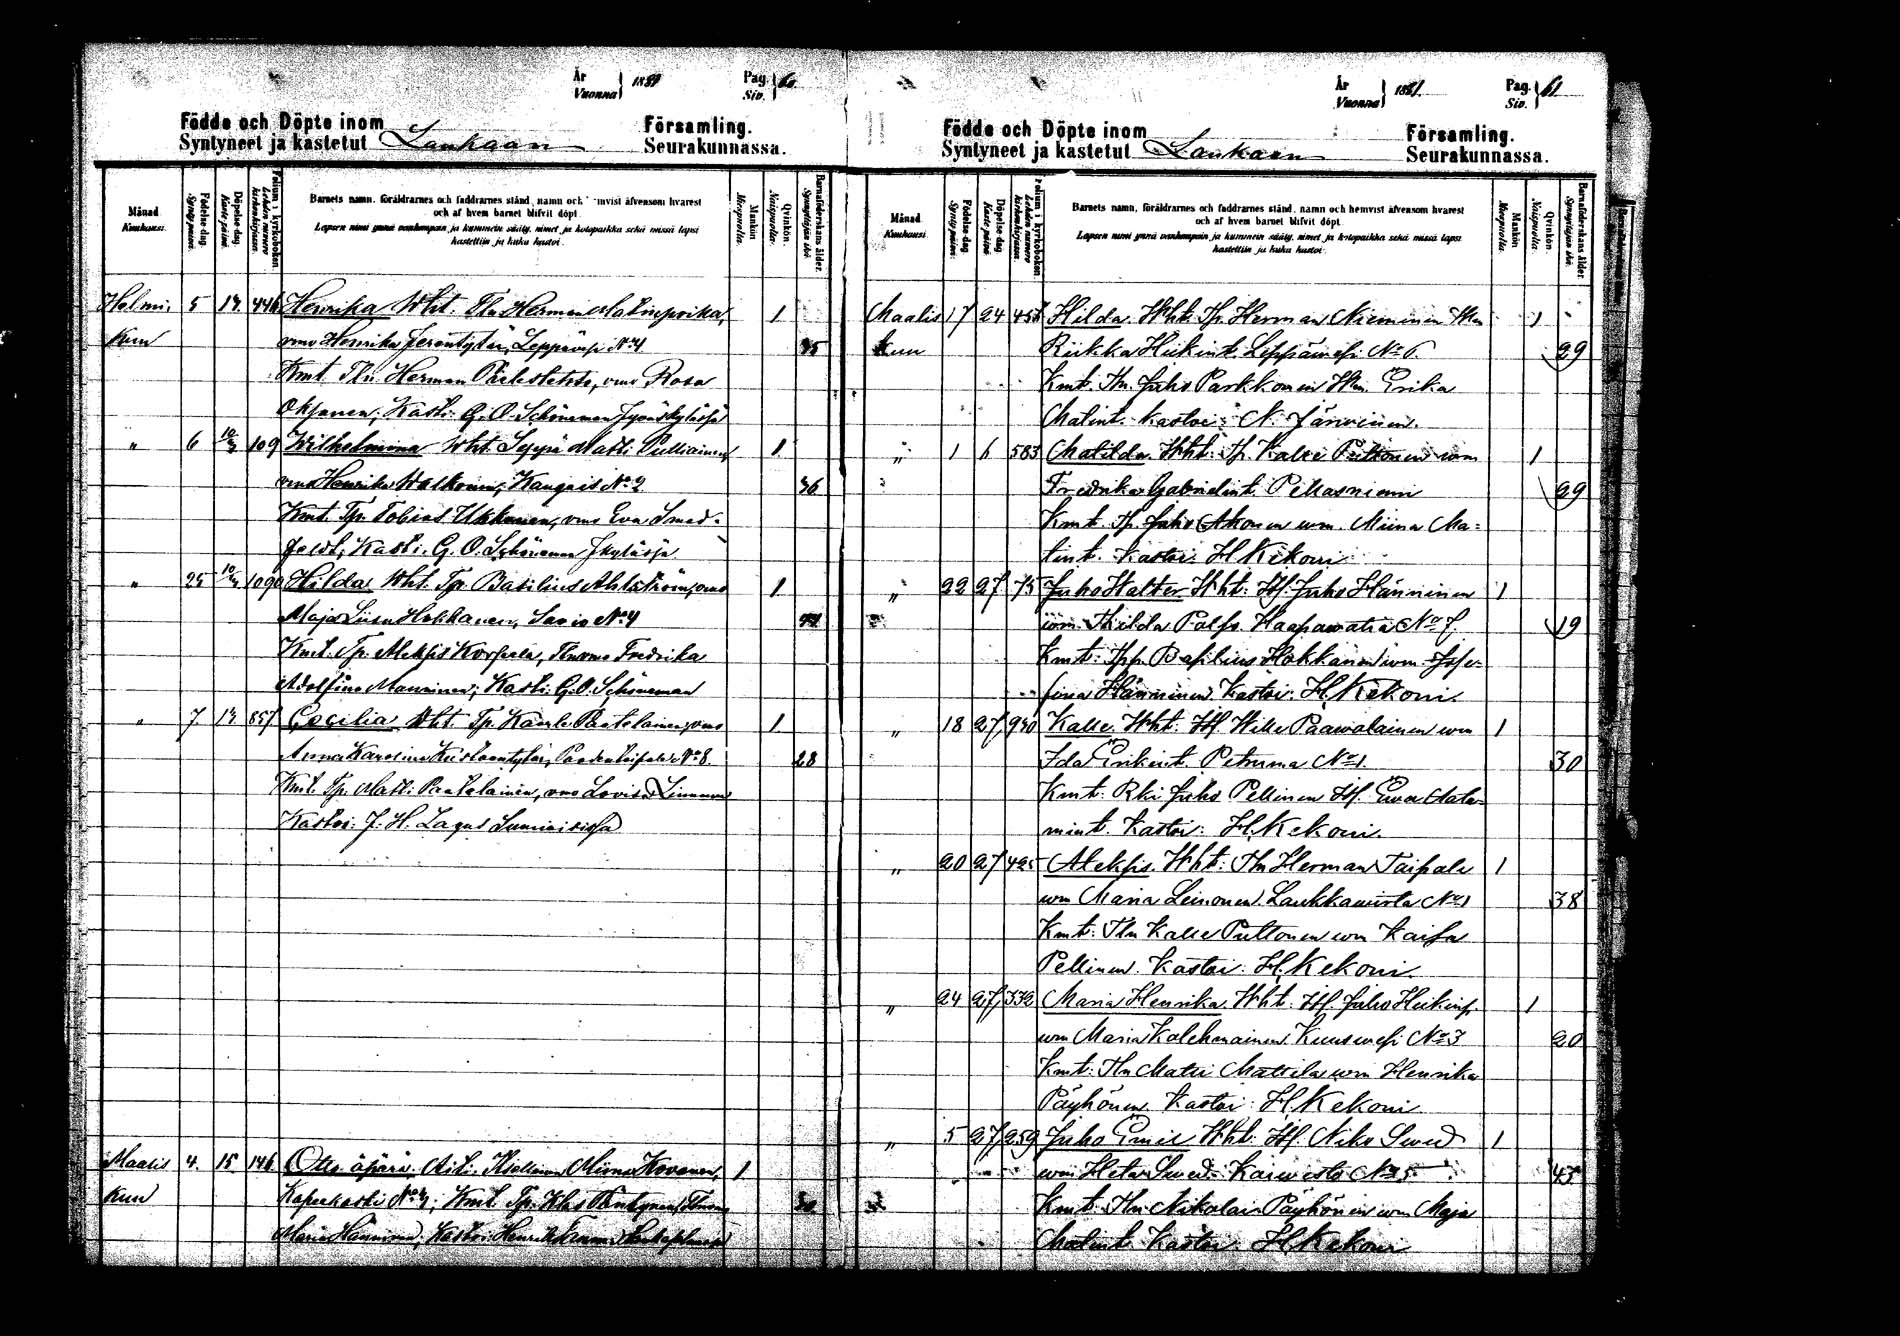 År Vuonna } 1881 Pag. Siv. } 60
Födde och Döpte inom Församling.
Syntyneet ja kastetut Laukaan Seurakunnassa.
Månad. Kuukausi.
Födelse-dag. Syntypäivä.
Döpelse-dag. Kastepäivä.
Folium i kyrkoboken. Lehden numero kirkonkirjassa.
Barnets namn, föräldrarnes och faddrarnes stånd, namn och hemvist äfvensom hvarest
och af hvem barnet blifvit döpt.
Lapsen nimi ynnä vanhempain ja kummein sääty, nimet ja kotopaikka sekä missä lapsi
kastettiin ja kuka kastoi.
Mankön. Miespuolia.
Qvinkön. Naispuolia.
Barnaföderskans ålder. Synnyttäjän ikä.
Helmi 5 13. 446 Henrika Wht: Tln Herman 1
Kuu vmo Henrika Leppävesi No 4 35
Kmt. Tln Herman vmo Rosa
Oksanen; Kasti: G. O. Schöneman Jyväskylässä
" 6 10/3 109 Wilhelmina Wht. Seppä Matti Pulliainen 1
vmo Henrika Walkonen, Kangais No 2 36
Kmt. Tp. Tobias Ukkonen, vmo Eva Smed-
feldt; Kasti. G. O. Schöneman Jkylässä
" 25 10/3 1090 Hilda Wht. Tp. Basilius Ahlström, vmo 1
Maja Liisa Hokkanen, Savio No 4
Kmt. Tp. Aleksis Korpela, Tln vmo Fredrika
Adolfina Manninen; Kasti: G. O. Schöneman
" 7. 13 857 Cecilia Wht Tp. Kaarle Paatelainen, vmo 1
Anna Karolina Kustaantytär, No 8. 28
Kmt. Tp. Matti Paatelainen, vmo Lovisa Linnunen
Kastoi: J. H. Lagus Sumiaisissa
Maalis 4. 15 146 Otto äpärä, Äiti: Miina Kovanen, 1
Kuu No 4; Kmt. Tp. Klas
Maria Hänninen; Kastoi: Henrik
År Vuonna } 1881. Pag. Siv. } 61
Födde och Döpte inom Församling.
Syntyneet ja kastetut Laukaan Seurakunnassa.
Månad. Kuukausi.
Födelse-dag. Syntypäivä.
Döpelse-dag. Kastepäivä.
Folium i kyrkoboken. Lehden numero kirkonkirjassa.
Barnets namn, föräldrarnes och faddrarnes stånd, namn och hemvist äfvensom hvarest
och af hvem barnet blifvit döpt.
Lapsen nimi ynnä vanhempain ja kummein sääty, nimet ja kotopaikka sekä missä lapsi
kastettiin ja kuka kastoi.
Mankön. Miespuolia.
Qvinkön. Naispuolia.
Barnaföderskans ålder. Synnyttäjän ikä.
Maalis 17 24 Hilda. Wht: Tp. Herman Nieminen 1
kuu Riikka Heikint. Leppävesi No 6. 29
Kmt. Tln. Juho Parkkonen Erika
Matint. Kastoi: N. Järvinen.
" 1 6 583 Matilda. Wht: Tp. Kalle Puttonen wm 1
Fredrika Gabrielint. Pellasniemi 29
Kmt. Tp. Juho Ahonen wm. Miina Ma-
tint. Kastoi: H. Kekoni
" 22 27 75 Juho Walter. Wht: Juho Hänninen 1
wm. Hilda Haapavatia No 7. 19
Kmt: Basilius Hokkanen wm Jose-
fina Hänninen. Kastoi: H. Kekoni.
" 18 27 930 Kalle. Wht: Wille Paavolainen wm 1
Ida Erikint. Petruma No 1. 30
Kmt: Rki Juho Pellinen Eva Aata-
mint. Kastoi: H. Kekoni.
" 20 27 425 Aleksis. Wht: Tln Herman Taipale 1
wm Maria Leinonen. Laukkavirta No 1 38
Kmt: Tln Kalle Puttonen wm Kaisa
Pellinen. Kastoi: H. Kekoni.
" 24 27 332 Maria Henrika. Wht: Juho Heikinp. 1
wm Maria Kolehmainen. Kuusvesi No 3 20
Kmt: Tln Matti Mattila wm Henrika
Päyhönen. Kastoi: H. Kekoni
" 5 27 259 Juho Emil Wht: Niko Swed 1
wm Heta Swed. No 5 45
Kmt: Tln Nikolai Päyhönen wm Maja
Matint. Kastoi. H. Kekoni